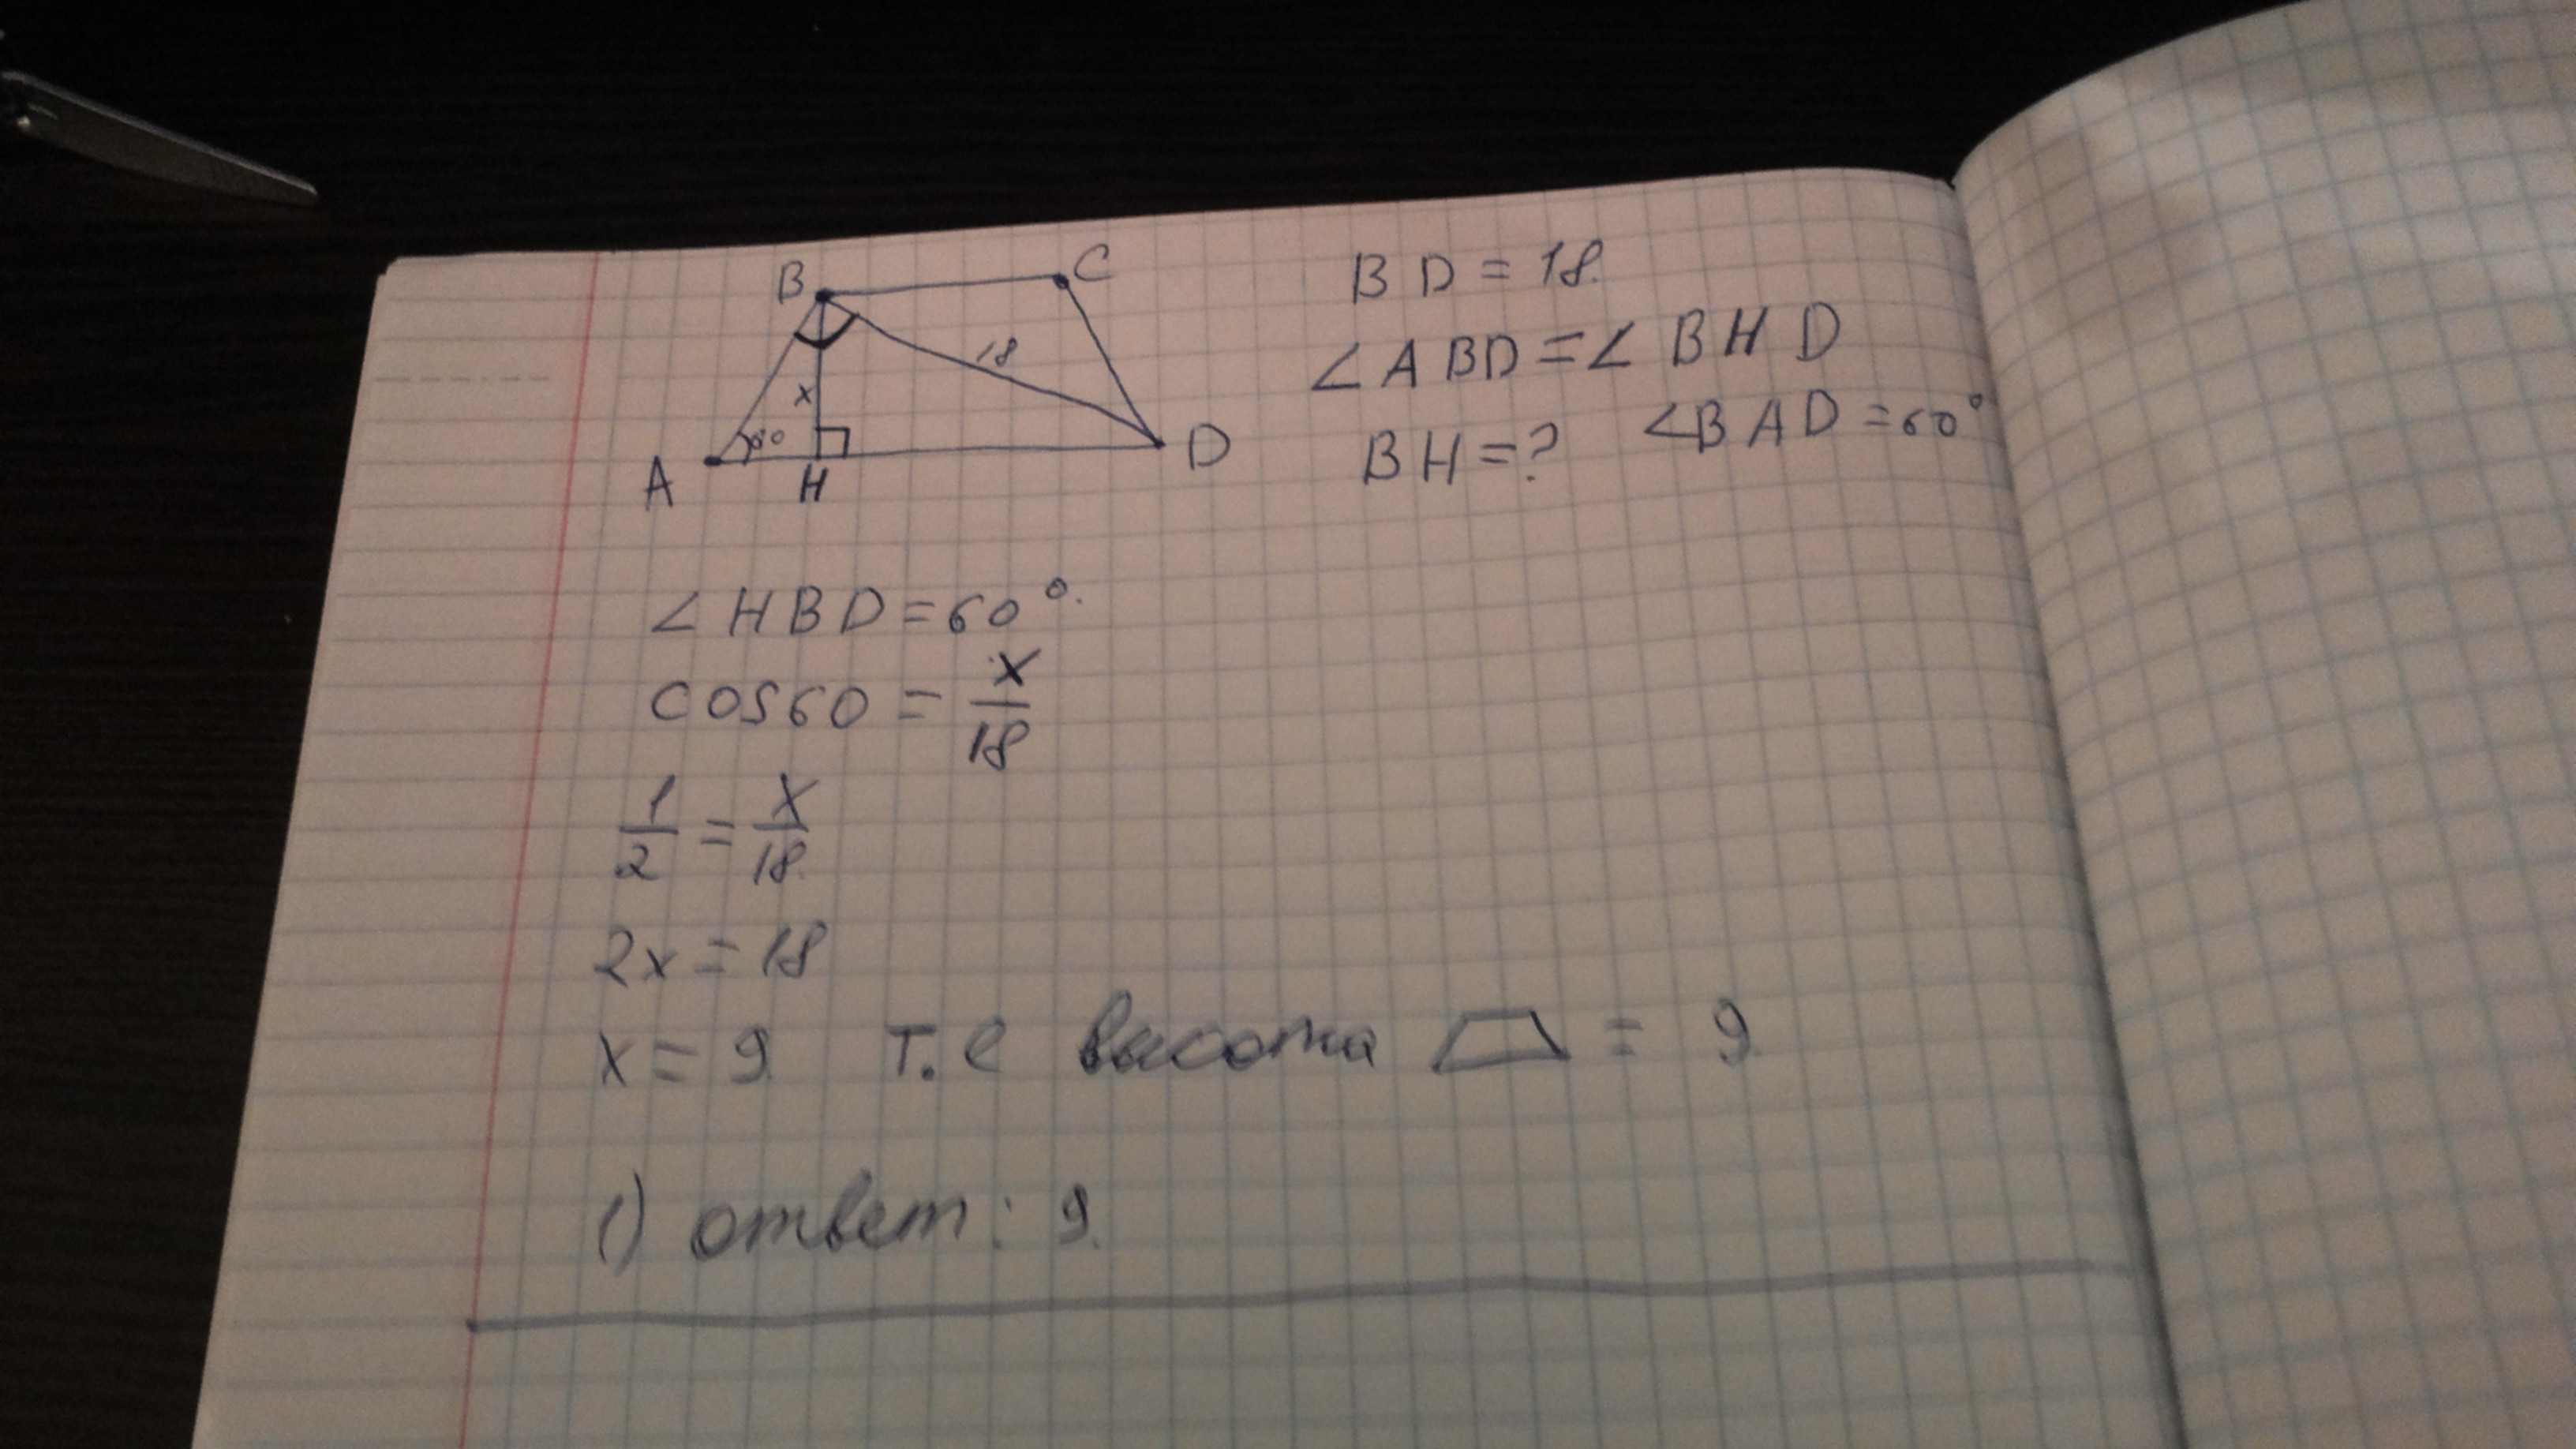 B C
18
x
60
A H D
BD = 18.
∠ABD = ∠BHD
BH = ? ∠BAD = 60°
∠HBD = 60°.
cos60 = x/18
1/2 = x/18
2x = 18
x = 9 т.е высота ⏢ = 9
1) ответ: 9.